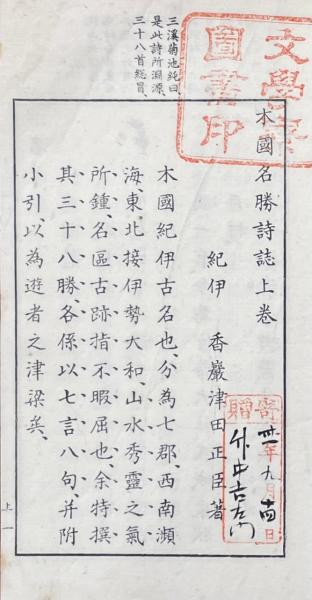 三溪菊池純曰、
是此詩所淵源、
三十八首総冒、
木國名勝詩誌上卷
紀伊 香巖津田正臣著
木國紀伊古名也、分為七郡、西南瀕
海、東北接伊勢大和、山水秀靈之氣
所鍾、名區古跡指不暇屈也、余特撰
其三十八勝、各係以七言八句、并附
小引、以為遊者之津梁矣、
上一
圖書印
寄贈
年九月
日